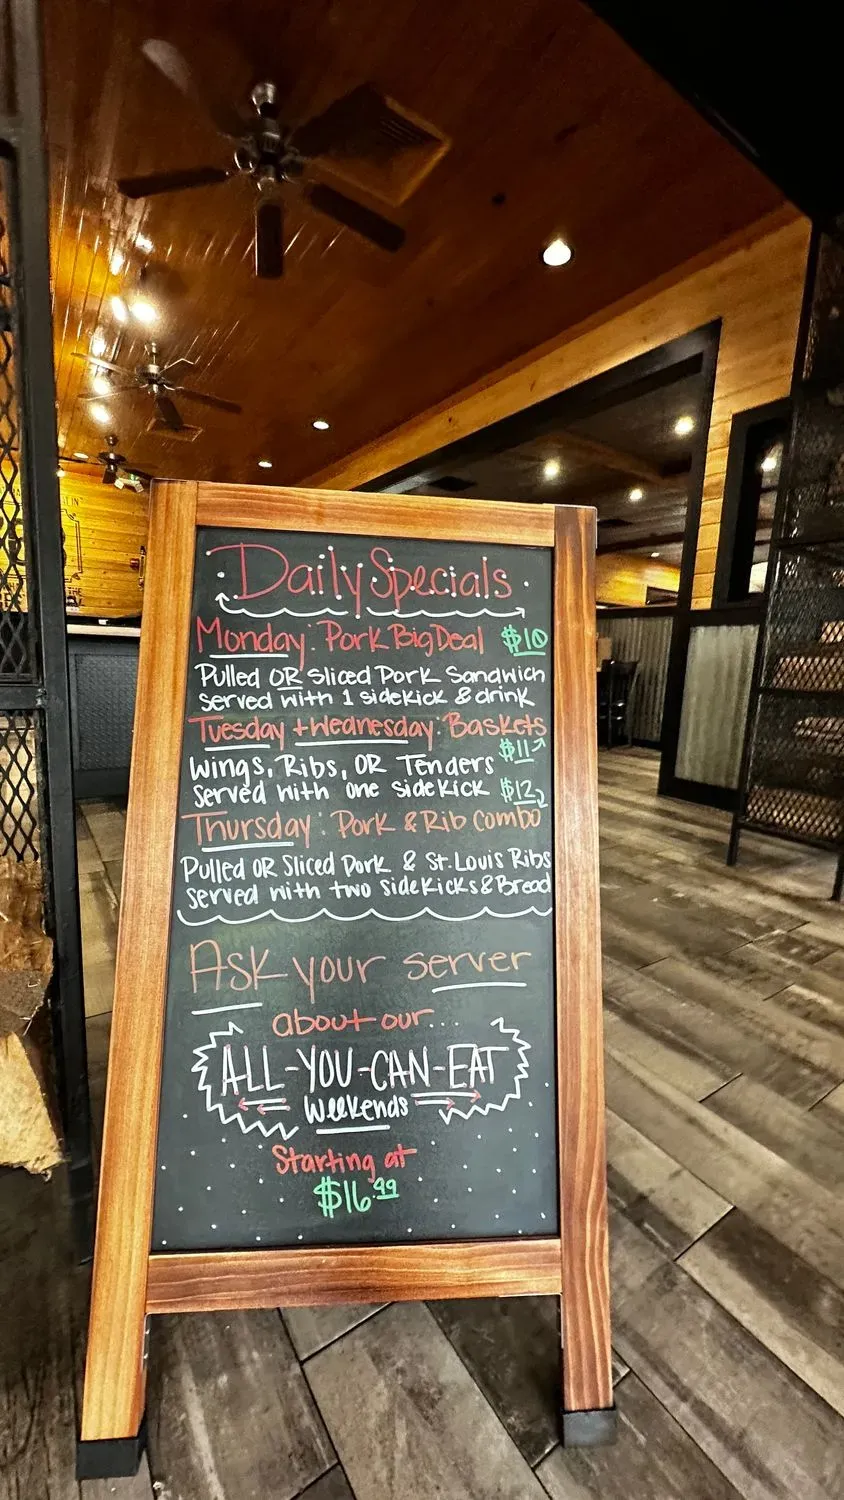 Daily Specials
Monday: Pork Big Deal $10
Pulled OR Sliced Pork Sandwich
served with 1 sidekick & drink
Tuesday + Wednesday: Baskets
$11
Wings, Ribs, OR Tenders
Served with one sidekick $12
Thursday: Pork & Rib combo
Pulled OR Sliced Pork & St. Louis Ribs
served with two sidekicks & Bread
Ask your server
about our...
ALL-YOU-CAN-EAT
Weekends
Starting at
$16.99